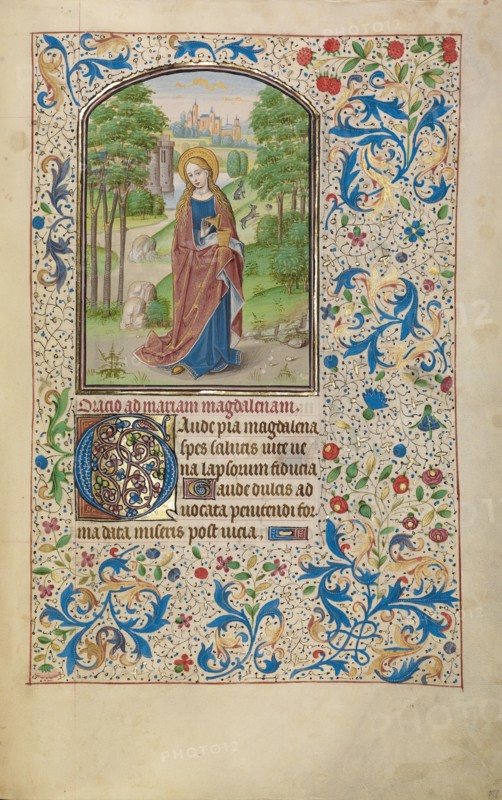 Oracio ad mariam magdalenam.
GAude pia magdalena
spes salutis uite ue
na lapsorum fiducia
Gaude dulcis ad
uocata penitendi for
ma data miseris post uicia.
PHOTO12